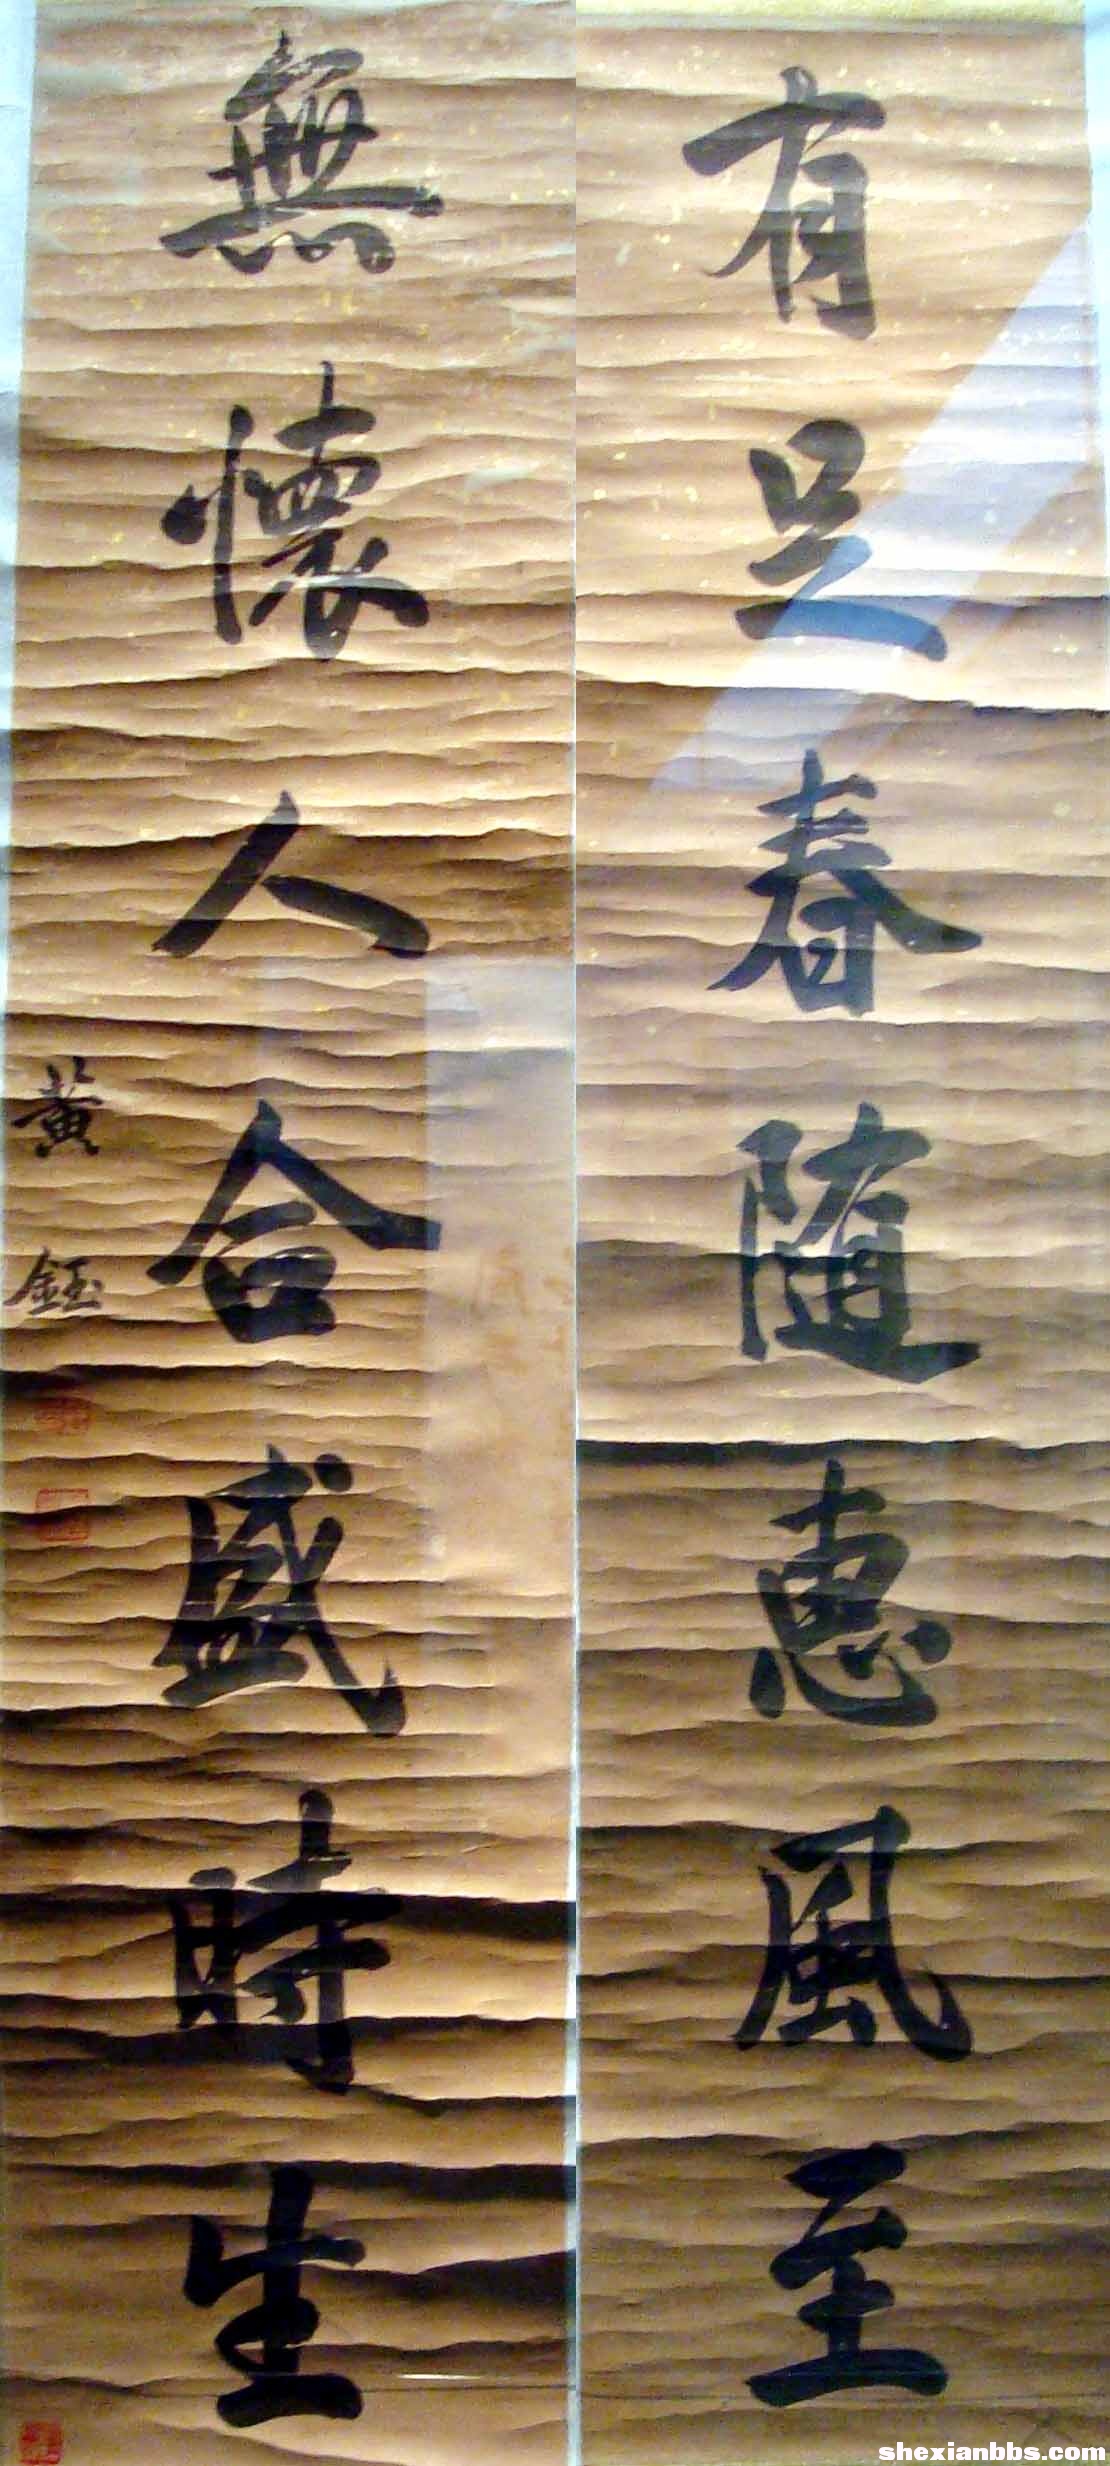 有足春随惠風至
無懷人合盛時生
黃鈺
shexianbbs.com